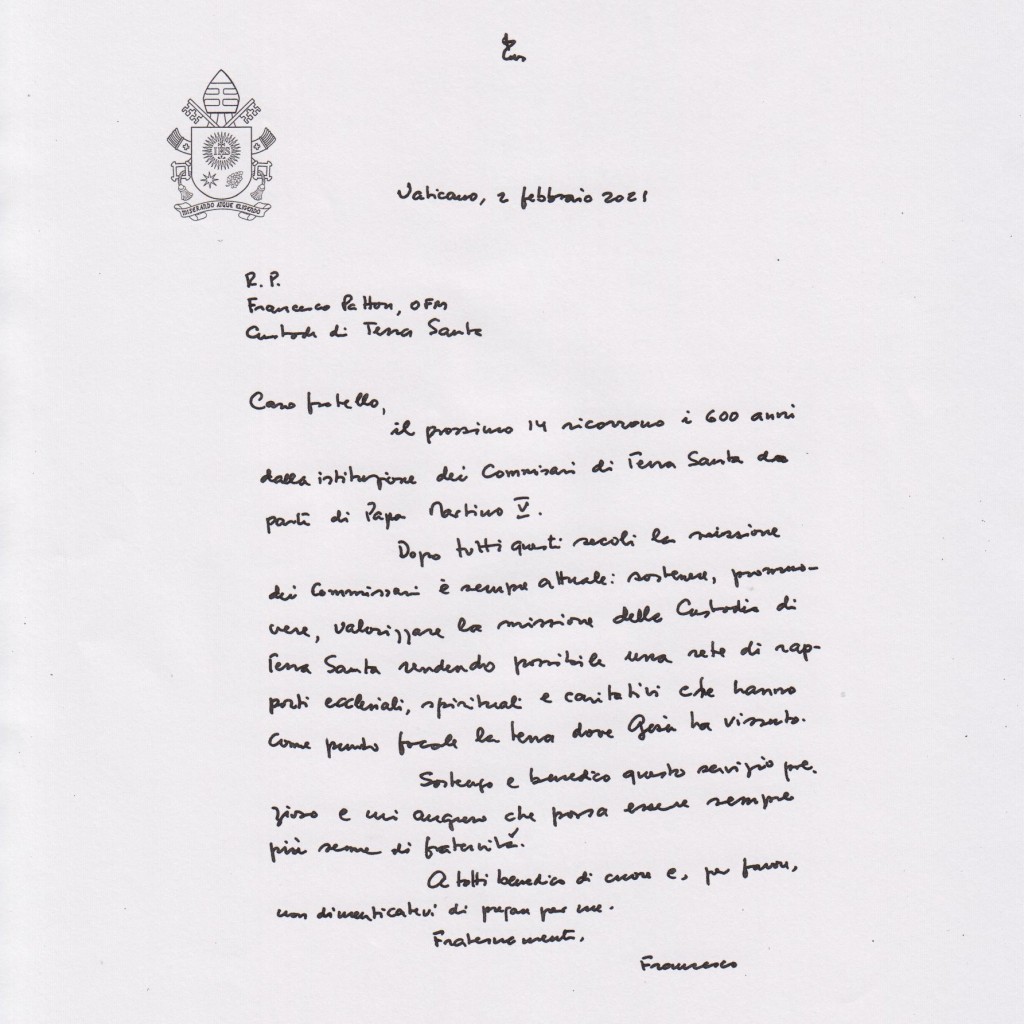 IHS
MISERANDO ATQUE ELIGENDO
Vaticano, 2 febbraio 2021
R. P.
Francesco Patton, OFM
Custode di Terra Santa
Caro fratello,
il prossimo 14 ricorrono i 600 anni
dalla istituzione dei Commissari di Terra Santa da
parte di Papa Martino V.
Dopo tutti questi secoli la missione
dei Commissari è sempre attuale: sostenere, promuo-
vere, valorizzare la missione della Custodia di
Terra Santa rendendo possibile una rete di rap-
porti ecclesiali, spirituali e caritativi che hanno
come punto focale la terra dove Gesù ha vissuto.
Sostengo e benedico questo servizio pre-
zioso e mi auguro che possa essere sempre
più seme di fraternità.
A tutti benedico di cuore e, per favore,
non dimenticatevi di pregare per me.
Fraternamente,
Francesco